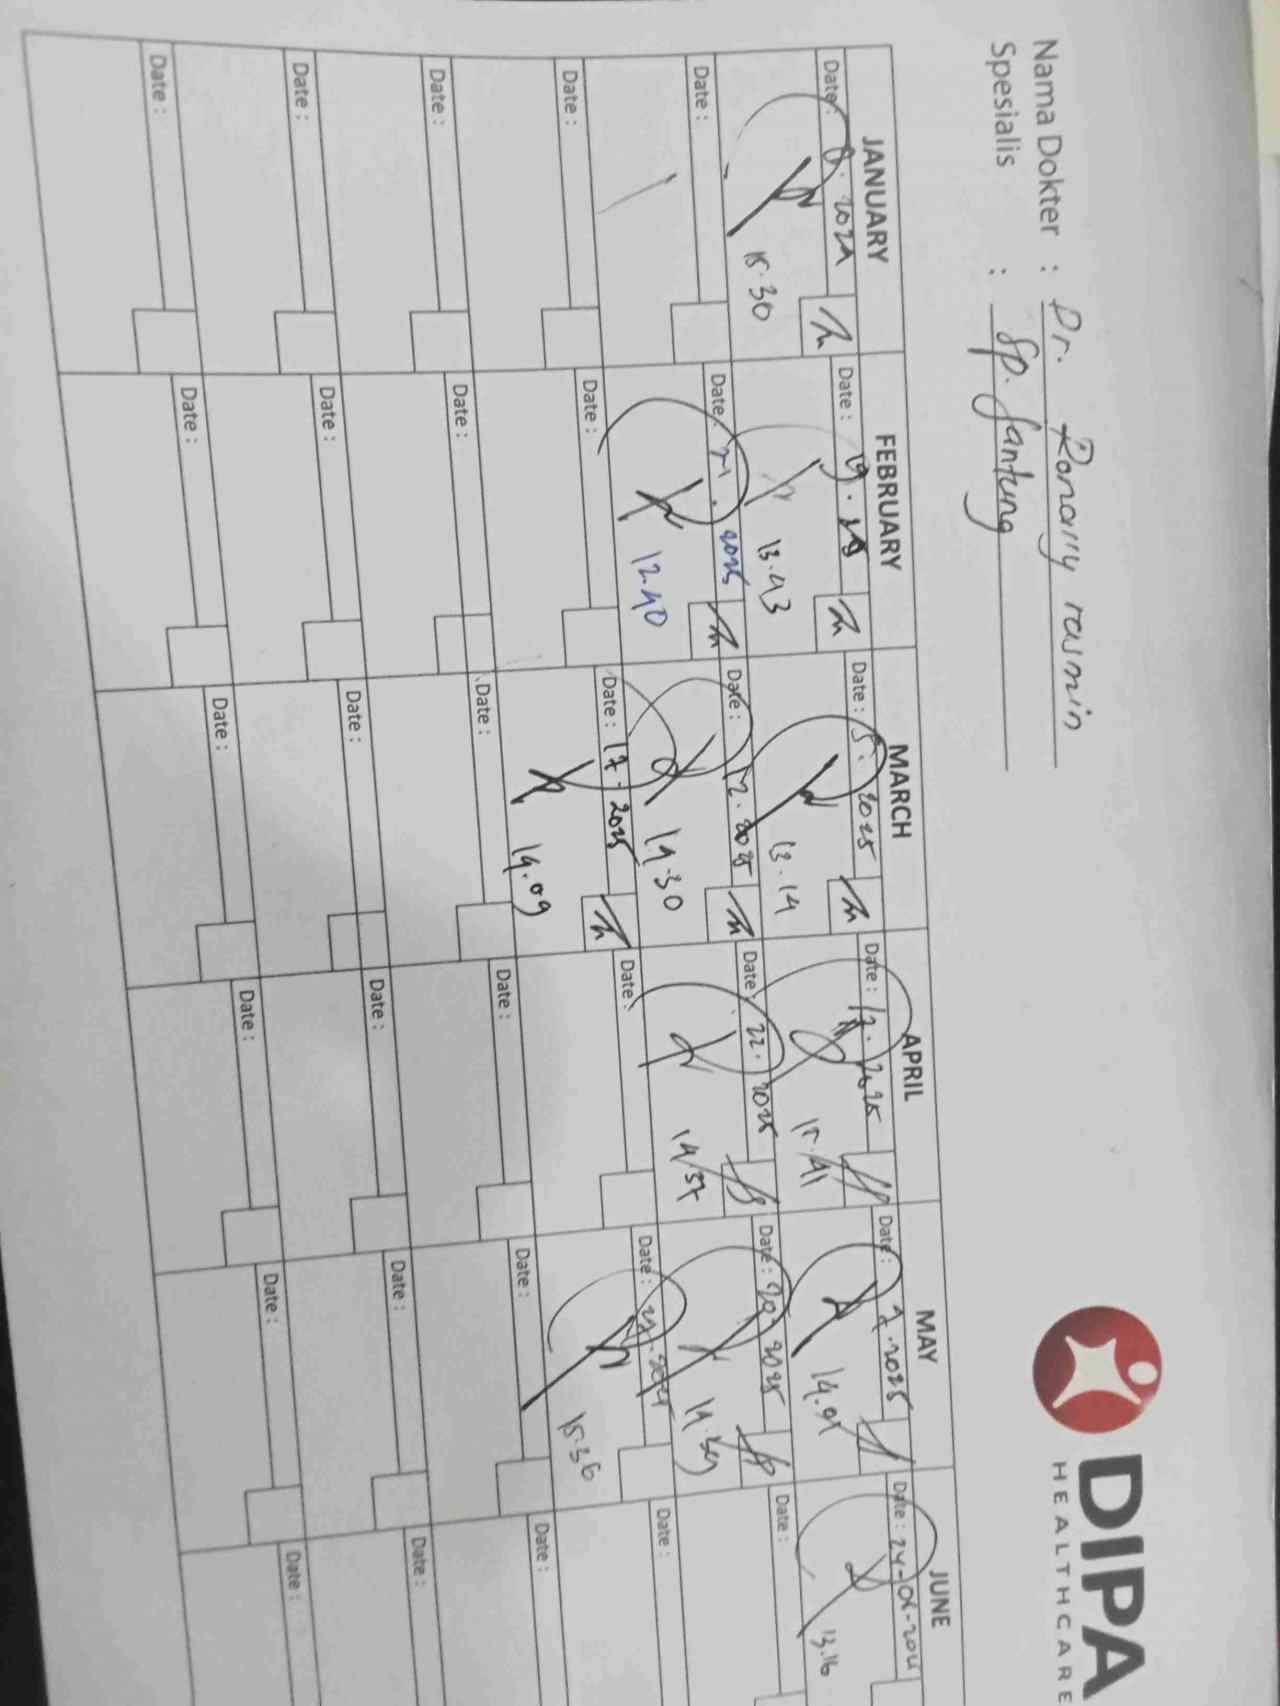 DIPA
HEALTHCARE
Nama Dokter : Dr. Ronaly rasmin
Spesialis : Sp. Jantung
JANUARY FEBRUARY MARCH APRIL MAY JUNE
Date: 8. Date: 19. Date: 5. 2025 Date: 17. 2025 Date: 7. 2025 Date: 24-06-
15.30 13.43 13.14 15.41 14.01 13.16
Date: Date: 2025 Date: 12. 2025 Date: 22. 2025 Date: 20. 2025 Date:
12.40 14.30 14.37 14.39
Date: Date: Date: 17. 2025 Date: Date: Date:
14.09 15.36
Date: Date: Date: Date: Date: Date:
Date: Date: Date: Date: Date: Date:
Date: Date: Date: Date: Date: Date: